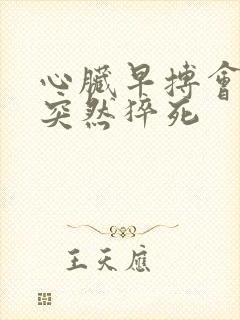 心臟早搏會
突然猝死
王天應